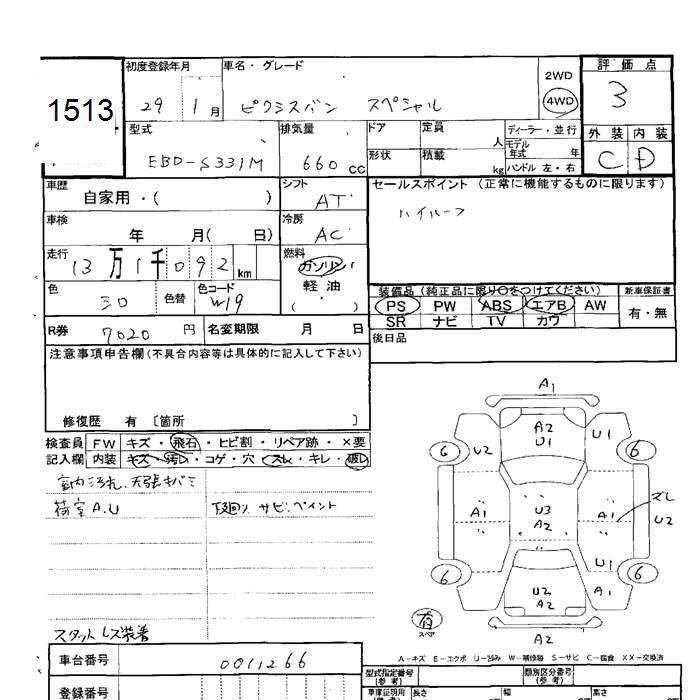 1513
初度登録年月 車名・グレード
29 1月 ピクシスバン スペシャル
2WD
4WD
評価点
3
外装 内装
C D
型式 EBD-S331M
排気量 660 cc
ドア 定員 人
形状 積載 kg
ディーラー・並行
モデル年式 年
ハンドル 左・右
車歴 自家用・( )
シフト AT
セールスポイント (正常に機能するものに限ります)
ハイルーフ
車検 年 月( 日)
冷房 AC
走行 13万1千092 km
燃料 ガソリン
軽油
( )
色 シロ 色替 色コード W19
装備品 (純正品に限り○をつけてください) 新車保証書
PS PW ABS エアB AW 有・無
SR ナビ TV カワ
R券 7020円 名変期限 月 日
後日品
注意事項申告欄(不具合内容等は具体的に記入して下さい)
修復歴 有 〔箇所 〕
検査員 FW キズ・飛石・ヒビ割・リペア跡・×要
記入欄 内装 キズ・汚レ・コゲ・穴・スレ・キレ・破レ
室内汚れ、天張キバミ
荷室A.U 下回り サビ.ペイント
スタットレス装着
A1
A2
U1
U2 U1
6 6
U3
A2
A1 A1 スレ
U2
U1
A1
6 6
U2
A2
有
スペア
A2
A-キズ E-エクボ U-凹み W-補修跡 S-サビ C-腐食 XX-交換済
車台番号 0011266
登録番号
型式指定番号
(参考)
類別区分番号
(参考)
車庫証明用
長さ 幅 高さ